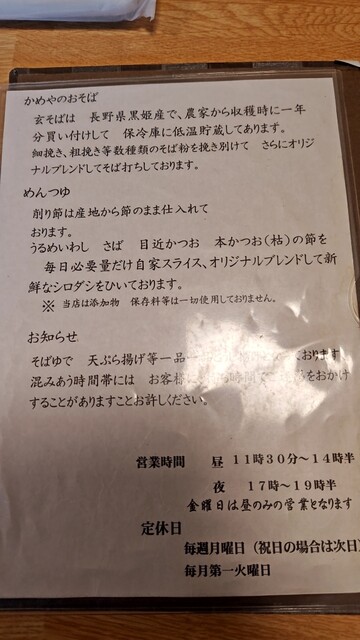 かめやのおそば
玄そばは 長野県黒姫産で、農家から収穫時に一年
分買い付けして 保冷庫に低温貯蔵してあります。
細挽き、粗挽き等数種類のそば粉を挽き別けて さらにオリジ
ナルブレンドしてそば打ちしております。
めんつゆ
削り節は産地から節のまま仕入れて
おります。
うるめいわし さば 目近かつお 本かつお(枯)の節を
毎日必要量だけ自家スライス、オリジナルブレンドして新
鮮なシロダシをひいております。
※ 当店は添加物 保存料等は一切使用しておりません。
お知らせ
そばゆで 天ぷら揚げ等一品一 おります
混みあう時間帯には お客様に 時間で をおかけ
することがありますことお許しください。
営業時間 昼 11時30分～14時半
夜 17時～19時半
金曜日は昼のみの営業となります
定休日
毎週月曜日(祝日の場合は次日)
毎月第一火曜日